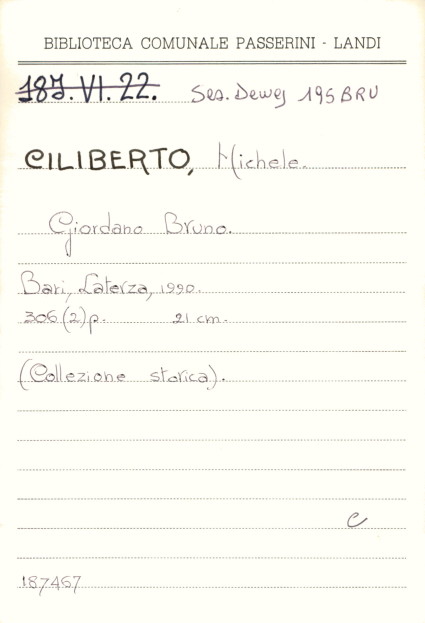 BIBLIOTECA COMUNALE PASSERINI - LANDI
187. VI. 22. Ses. Dewey 195 BRU
CILIBERTO, Michele.
Giordano Bruno.
Bari, Laterza, 1990.
306 (2) p. 21 cm.
(Collezione storica).
C
187467